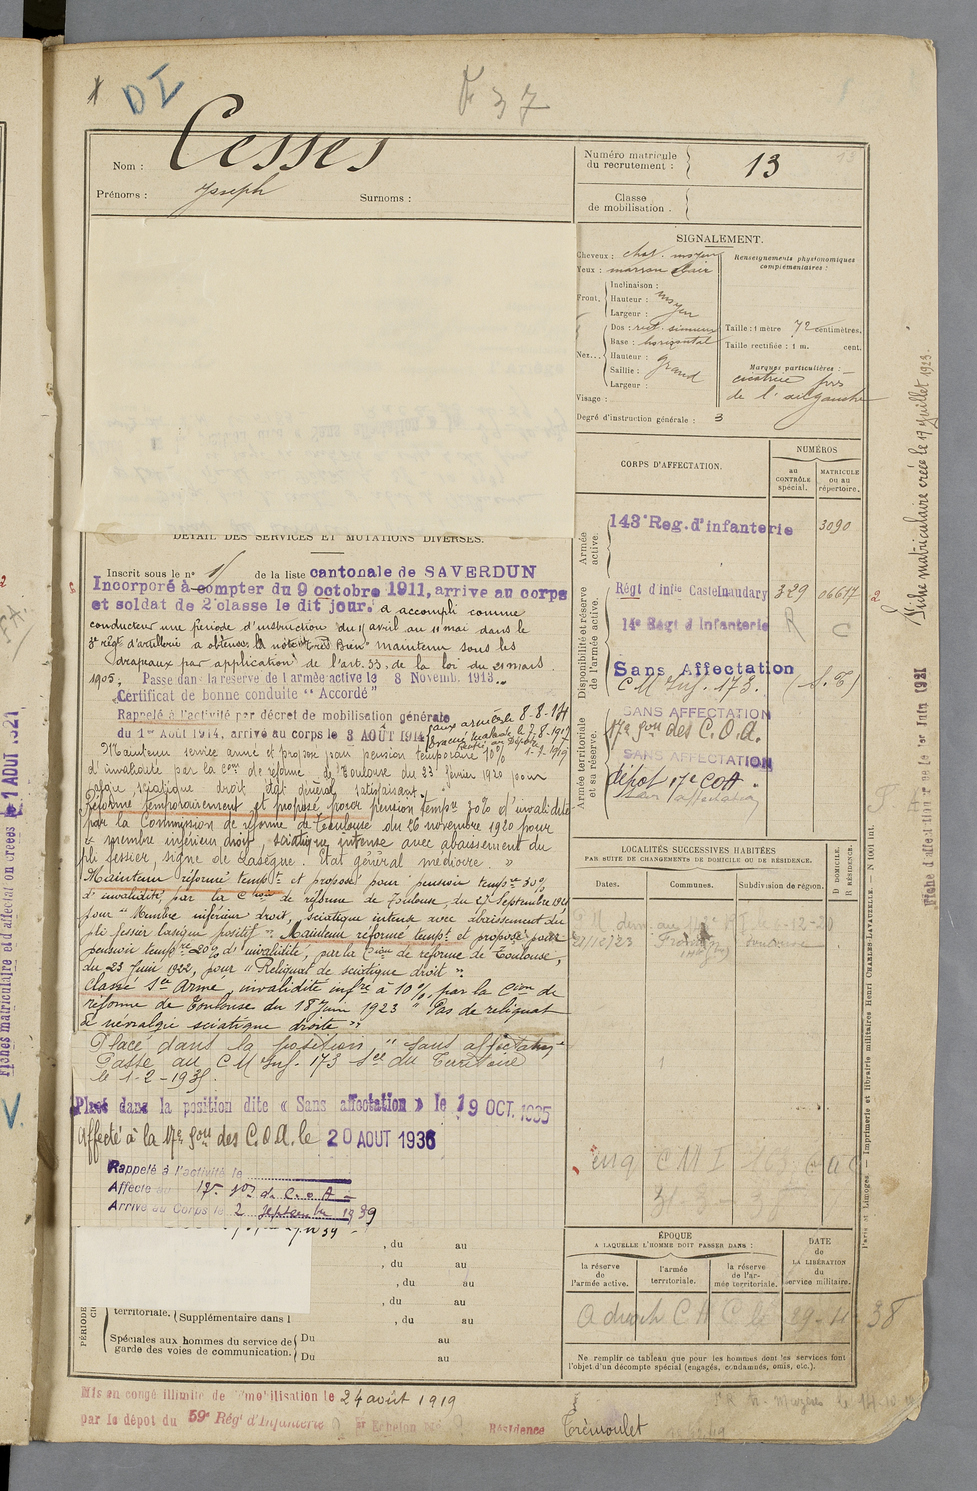 DI
F 37
Nom : Cesses
Prénoms : Joseph Surnoms :
Numéro matricule du recrutement : 13
Classe de mobilisation.
SIGNALEMENT.
Cheveux : chat. moyen
Yeux : marron clair
Front. Inclinaison :
Hauteur : moyen
Largeur :
Nez... Dos : rect. sinueux
Base : horizontal
Hauteur : grand
Saillie :
Largeur :
Visage :
Degré d'instruction générale : 3
Renseignements physionomiques complémentaires :
Taille : 1 mètre 72 centimètres.
Taille rectifiée : 1 m. cent.
Marques particulières :
cicatrice près
de l'œil gauche
CORPS D'AFFECTATION.
NUMÉROS
au CONTRÔLE spécial.
MATRICULE ou au répertoire.
Armée active.
143e Reg. d'infanterie 3090
Disponibilité et réserve de l'armée active.
Régt d'infie Castelnaudary 329 06617
14e Régt d'Infanterie R C
Sans Affectation
C M Inf. 173.
Armée territoriale et sa réserve.
SANS AFFECTATION
17e son des C.O.A.
SANS AFFECTATION
dépôt 17e COA
sans affectation
DÉTAIL DES SERVICES ET MUTATIONS DIVERSES.
Inscrit sous le n° de la liste cantonale de SAVERDUN
Incorporé à compter du 9 octobre 1911, arrive au corps
et soldat de 2e classe le dit jour. a accompli comme
conducteur une période d'instruction du 11 avril au 11 mai dans le
3e régt d'artillerie a obtenu la note "Très Bien" maintenu sous les
drapeaux par application de l'art. 33, de la loi du 21 mars
1905. Passé dans la réserve de l'armée active le 8 Novemb. 1913.
Certificat de bonne conduite "Accordé"
Rappelé à l'activité par décret de mobilisation générale
du 1er Août 1914, arrivé au corps le 3 AOUT 1914
aux armées le 8-8-14
Évacué malade le 7-8-1917
Maintenu service armé et proposé pour pension temporaire 10%
d'invalidité par la Com de réforme de Toulouse du 23 février 1920 pour
sciatique droit état général satisfaisant.
Réformé temporairement et proposé pour pension tempre 30% d'invalidité
par la Commission de réforme de Toulouse du 26 novembre 1920 pour
" membre inférieur droit, sciatique intense avec abaissement du
pli fessier, signe de Lasègue. État général médiocre "
Maintenu réformé tempt et proposé pour pension tempre 30%
d'invalidité, par la Cion de réforme de Toulouse, du 27 Septembre 1921
pour "Membre inférieur droit, sciatique intense avec abaissement du
pli fessier Lasègue positif". Maintenu réformé tempt et proposé pour
pension tempre 20% d'invalidité, par la Cion de réforme de Toulouse,
du 23 Juin 1922, pour "Reliquat de sciatique droit".
Classé Sce Armé, invalidité infre à 10% par la Cion de
réforme de Toulouse du 18 Juin 1923 "Pas de reliquat
de névralgie sciatique droite"
Placé dans la position "sans affectation"
Passé au C M Inf. 173 Sce du Territoire
le 1-2-193
Placé dans la position dite « Sans affectation » le 19 OCT. 1935
Affecté à la 17e son des C.O.A. le 20 AOUT 1936
Rappelé à l'activité le
Affecté au 17e son de C.O.A
Arrivé au Corps le 2 septembre 1939
LOCALITÉS SUCCESSIVES HABITÉES
PAR SUITE DE CHANGEMENTS DE DOMICILE OU DE RÉSIDENCE.
Dates. Communes. Subdivision de région. D DOMICILE. R RÉSIDENCE.
Toulouse
ÉPOQUE
A LAQUELLE L'HOMME DOIT PASSER DANS :
la réserve de l'armée active.
l'armée territoriale.
la réserve de l'armée territoriale.
DATE de LA LIBÉRATION du service militaire.
A droit C H C le 29-11-38
, du au
, du au
, du au
, du au
territoriale. Supplémentaire dans l , du au
Spéciales aux hommes du service de garde des voies de communication. Du au
Du au
Ne remplir ce tableau que pour les hommes dont les services font l'objet d'un décompte spécial (engagés, condamnés, omis, etc.).
Mis en congé illimité de démobilisation le 24 août 1919
par le dépôt du 59e Régt d'Infanterie Échelon Résidence Trémoulet
Fiche matriculaire créée le 17 juillet 1923.
Fiche d'affectation créée le 1er Juin 1921
Paris et Limoges. — Imprimerie et librairie militaires Henri CHARLES-LAVAUZELLE. — N 1001 int.
Fiches matriculaire et d'affectation créées le 1 AOUT 1921